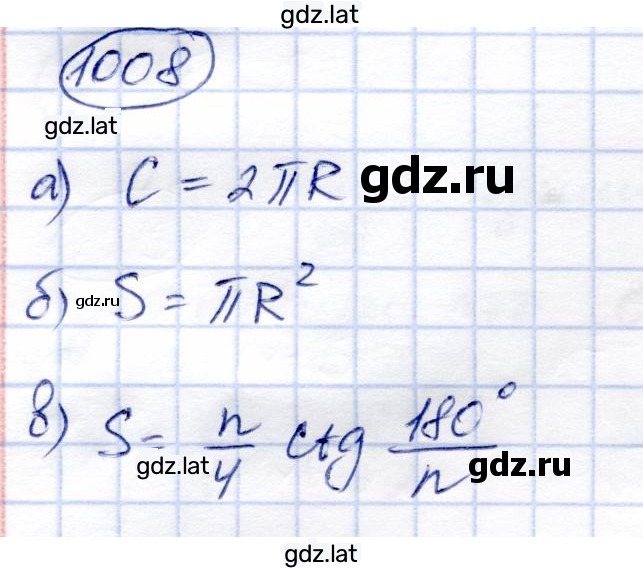 gdz.lat
1008
gdz.lat
а) C = 2πR gdz.ru
б) gdz.ru S = πR²
в) S = n/4 ctg 180°/n
gdz.lat gdz.ru
gdz.lat